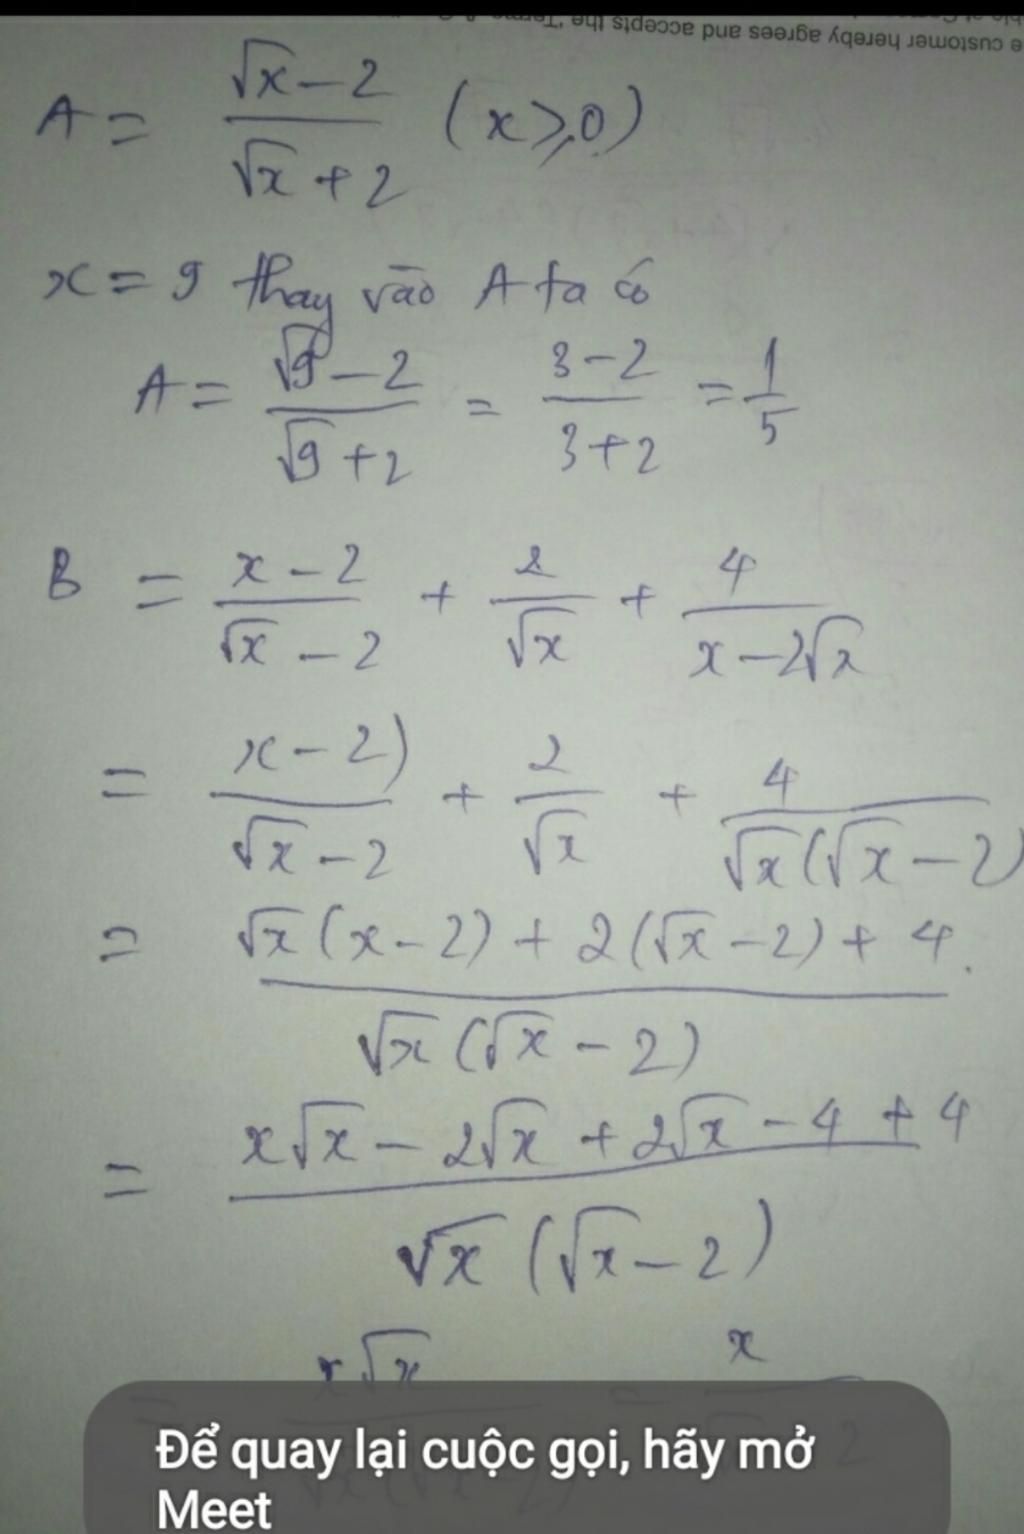 e customer hereby agrees and accepts the
A = (√x - 2)/(√x + 2) (x ⩾ 0)
x = 9 thay vào A ta có
A = (√9 - 2)/(√9 + 2) = (3 - 2)/(3 + 2) = 1/5
B = (x - 2)/(√x - 2) + 2/√x + 4/(x - 2√x)
= (x - 2))/(√x - 2) + 2/√x + 4/(√x(√x - 2)
= (√x(x - 2) + 2(√x - 2) + 4.)/(√x(√x - 2))
= (x√x - 2√x + 2√x - 4 + 4)/(√x(√x - 2))
x√x = x
Để quay lại cuộc gọi, hãy mở
Meet